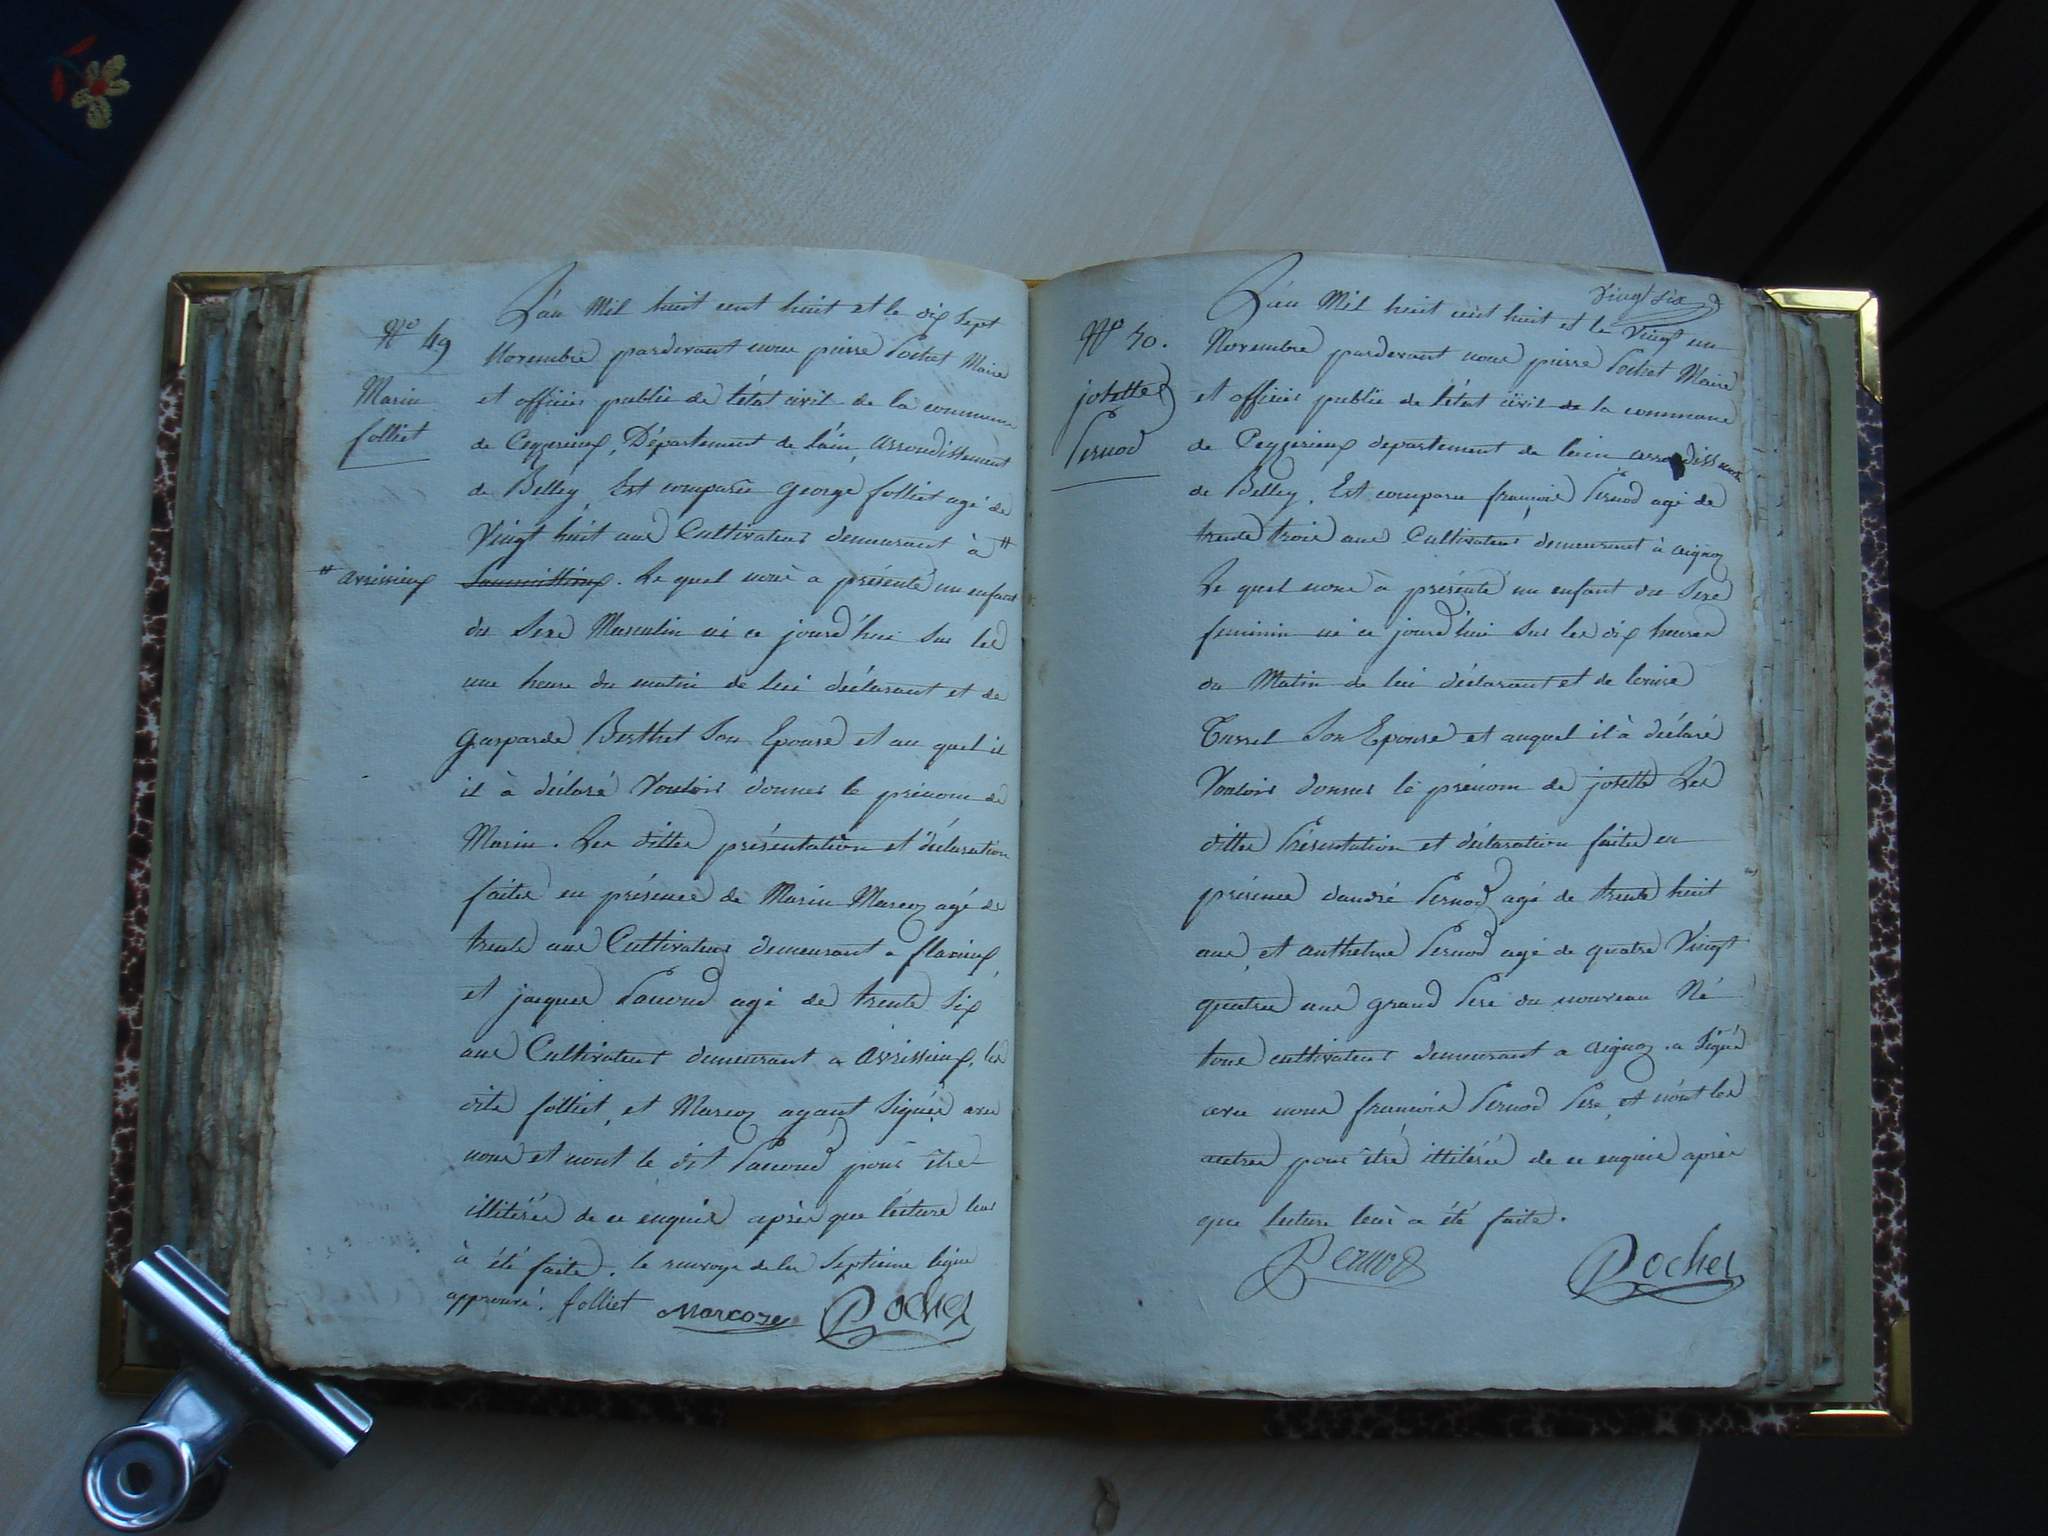 N° 49
Marin
folliet
L'an Mil huit cent huit et le dix sept
Novembre pardevant nous pierre Pochet Maire
et officier public de l'état civil de la commune
de Ceyzerieux, Département de l'ain, arrondissement
de Belley, Est comparu George folliet agé de
Vingt huit ans Cultivateur demeurant à #
# avrissieux
. Le quel nous a présenté un enfant
du Sexe Masculin né ce jourd'hui sur les
une heure du matin de lui déclarant et de
Gasparde Berthet Son Epouse et au quel il
il à déclaré Vouloir donner le prénom de
Marin. Les dittes présentation et déclaration
faites en présence de Marin Marcoz agé de
trente ans Cultivateur demeurant a flaxieux,
et jacques Pauoud agé de trente Six
ans Cultivateur demeurant a avrissieux, les
dits folliet, et Marcoz ayant Signés avec
nous et nont le dit Pauoud pour être
illitérés de ce enquis après que lecture leur
à été faite. le renvoye de la Septieme ligne
approuvé. folliet Marcoze Pochet
vingt six
N° 50.
josette
Pernod
L'an Mil huit cent huit et le Vingt un
Novembre pardevant nous pierre Pochet Maire
et officier public de l'état civil de la commune
de Ceyzerieux departement de lain arrondissement
de Belley, Est comparu françois Pernod agé de
trente trois ans Cultivateur demeurant à aignoz
Le quel nous à présenté un enfant du Sexe
feminin né ce jourd'hui sur les dix heures
du Matin de lui déclarant et de louise
Turrel Son Epouse et auquel il à déclaré
Vouloir donner le prénom de josette Les
dittes Présentation et déclaration faites en
présence d'andré Pernod agé de trente huit
ans, et anthelme Pernod agé de quatre Vingt
quatre ans grand Pere du nouveau Né
tous cultivateurs demeurant a aignoz. a Signé
avec nous françois Pernod Pere, et n'ont les
autres pour être illitérés de ce enquis après
que lecture leur a été faite.
Pernod Pochet